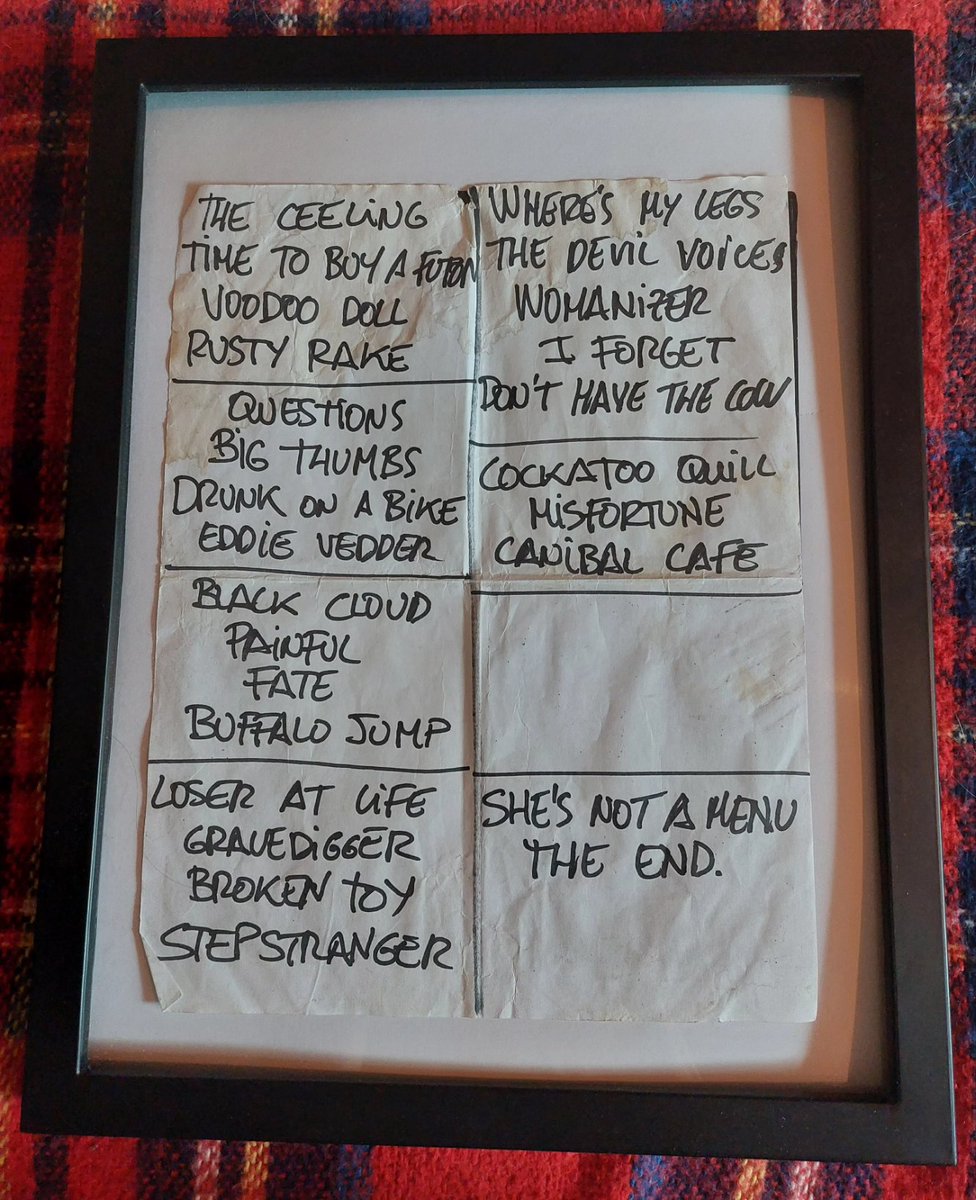 THE CEELING
TIME TO BUY A FUTON
VOODOO DOLL
RUSTY RAKE
QUESTIONS
BIG THUMBS
DRUNK ON A BIKE
EDDIE VEDDER
BLACK CLOUD
PAINFUL
FATE
BUFFALO JUMP
LOSER AT LIFE
GRAVEDIGGER
BROKEN TOY
STEPSTRANGER
WHERE'S MY LEGS
THE DEVIL VOICES
WOMANIZER
I FORGET
DON'T HAVE THE COW
COCKATOO QUILL
MISFORTUNE
CANIBAL CAFE
SHE'S NOT A MENU
THE END.